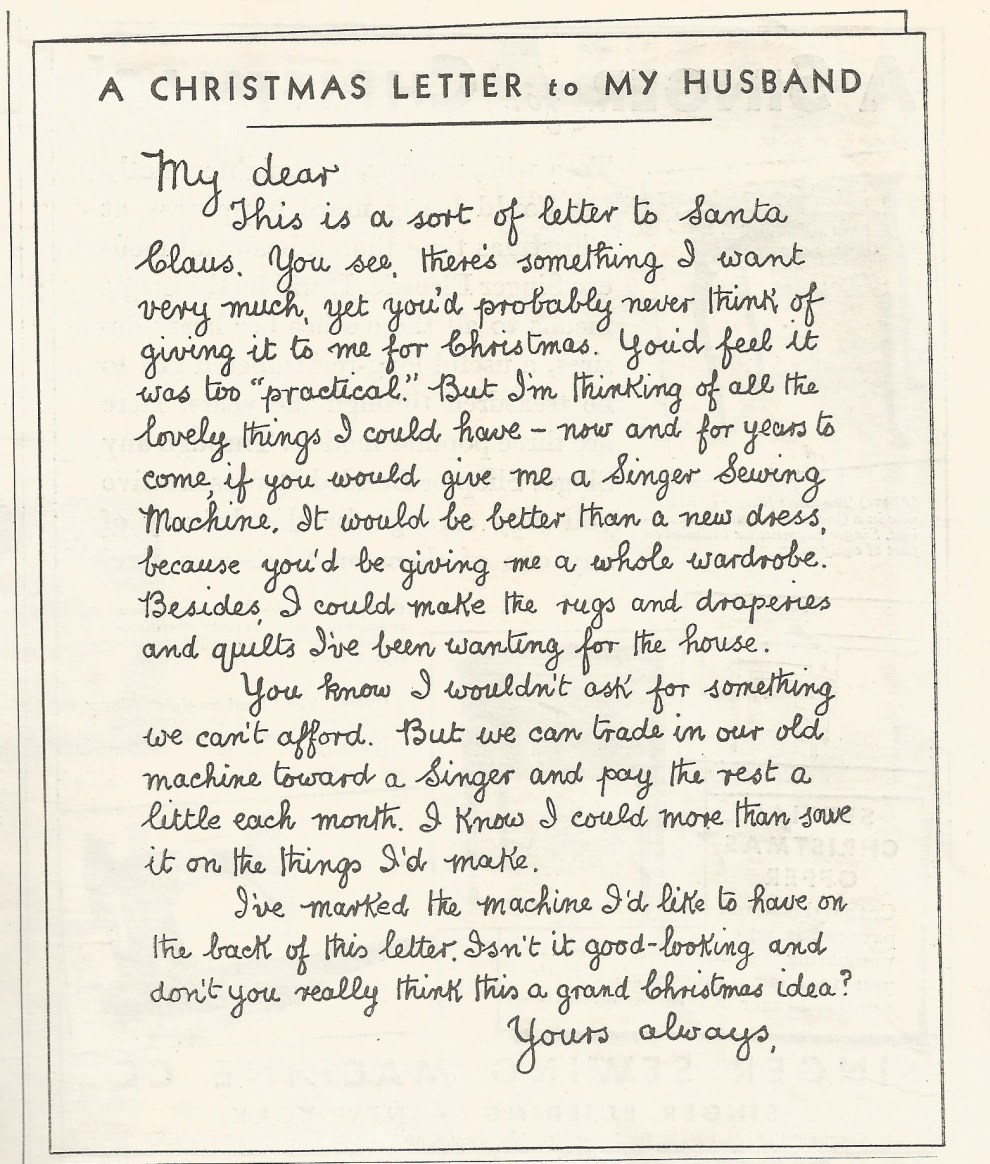 A CHRISTMAS LETTER to MY HUSBAND
My dear
This is a sort of letter to Santa
Claus. You see, there's something I want
very much, yet you'd probably never think of
giving it to me for Christmas. You'd feel it
was too "practical." But I'm thinking of all the
lovely things I could have – now and for years to
come, if you would give me a Singer Sewing
Machine. It would be better than a new dress,
because you'd be giving me a whole wardrobe.
Besides, I could make the rugs and draperies
and quilts I've been wanting for the house.
You know I wouldn't ask for something
we can't afford. But we can trade in our old
machine toward a Singer and pay the rest a
little each month. I know I could more than save
it on the things I'd make.
I've marked the machine I'd like to have on
the back of this letter. Isn't it good-looking and
don't you really think this a grand Christmas idea?
Yours always,